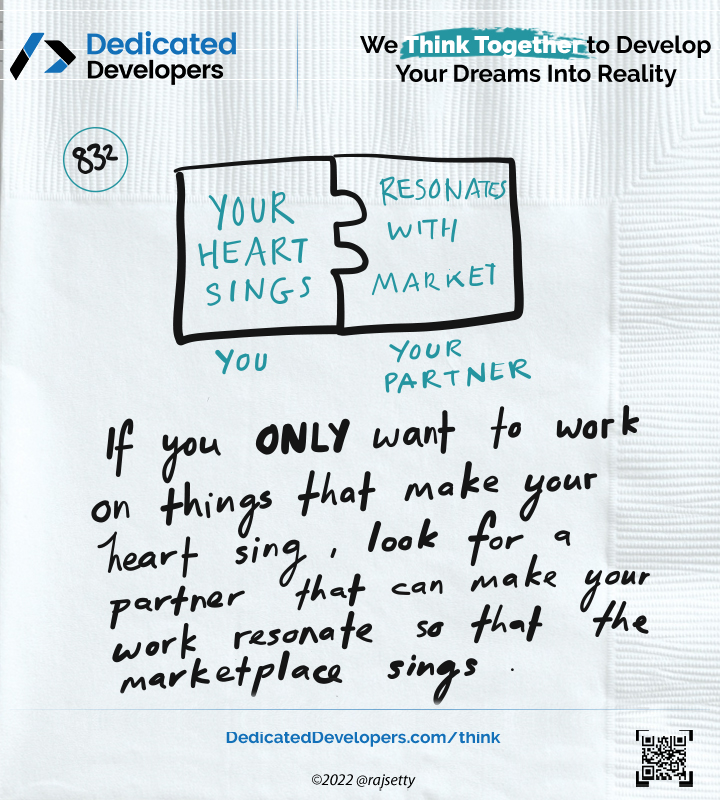 Dedicated
Developers
We Think Together to Develop
Your Dreams Into Reality
832
YOUR
HEART
SINGS
RESONATES
WITH
MARKET
YOU
YOUR
PARTNER
If you ONLY want to work
on things that make your
heart sing, look for a
partner that can make your
work resonate so that the
marketplace sings.
DedicatedDevelopers.com/think
©2022 @rajsetty